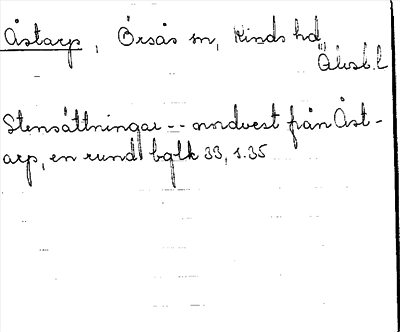 Åstarp, Örsås sn, Kinds hd,
Älvsb.l
Stensättningar -- nordvest från Åst-
arp, en rund bglk 33, s.35